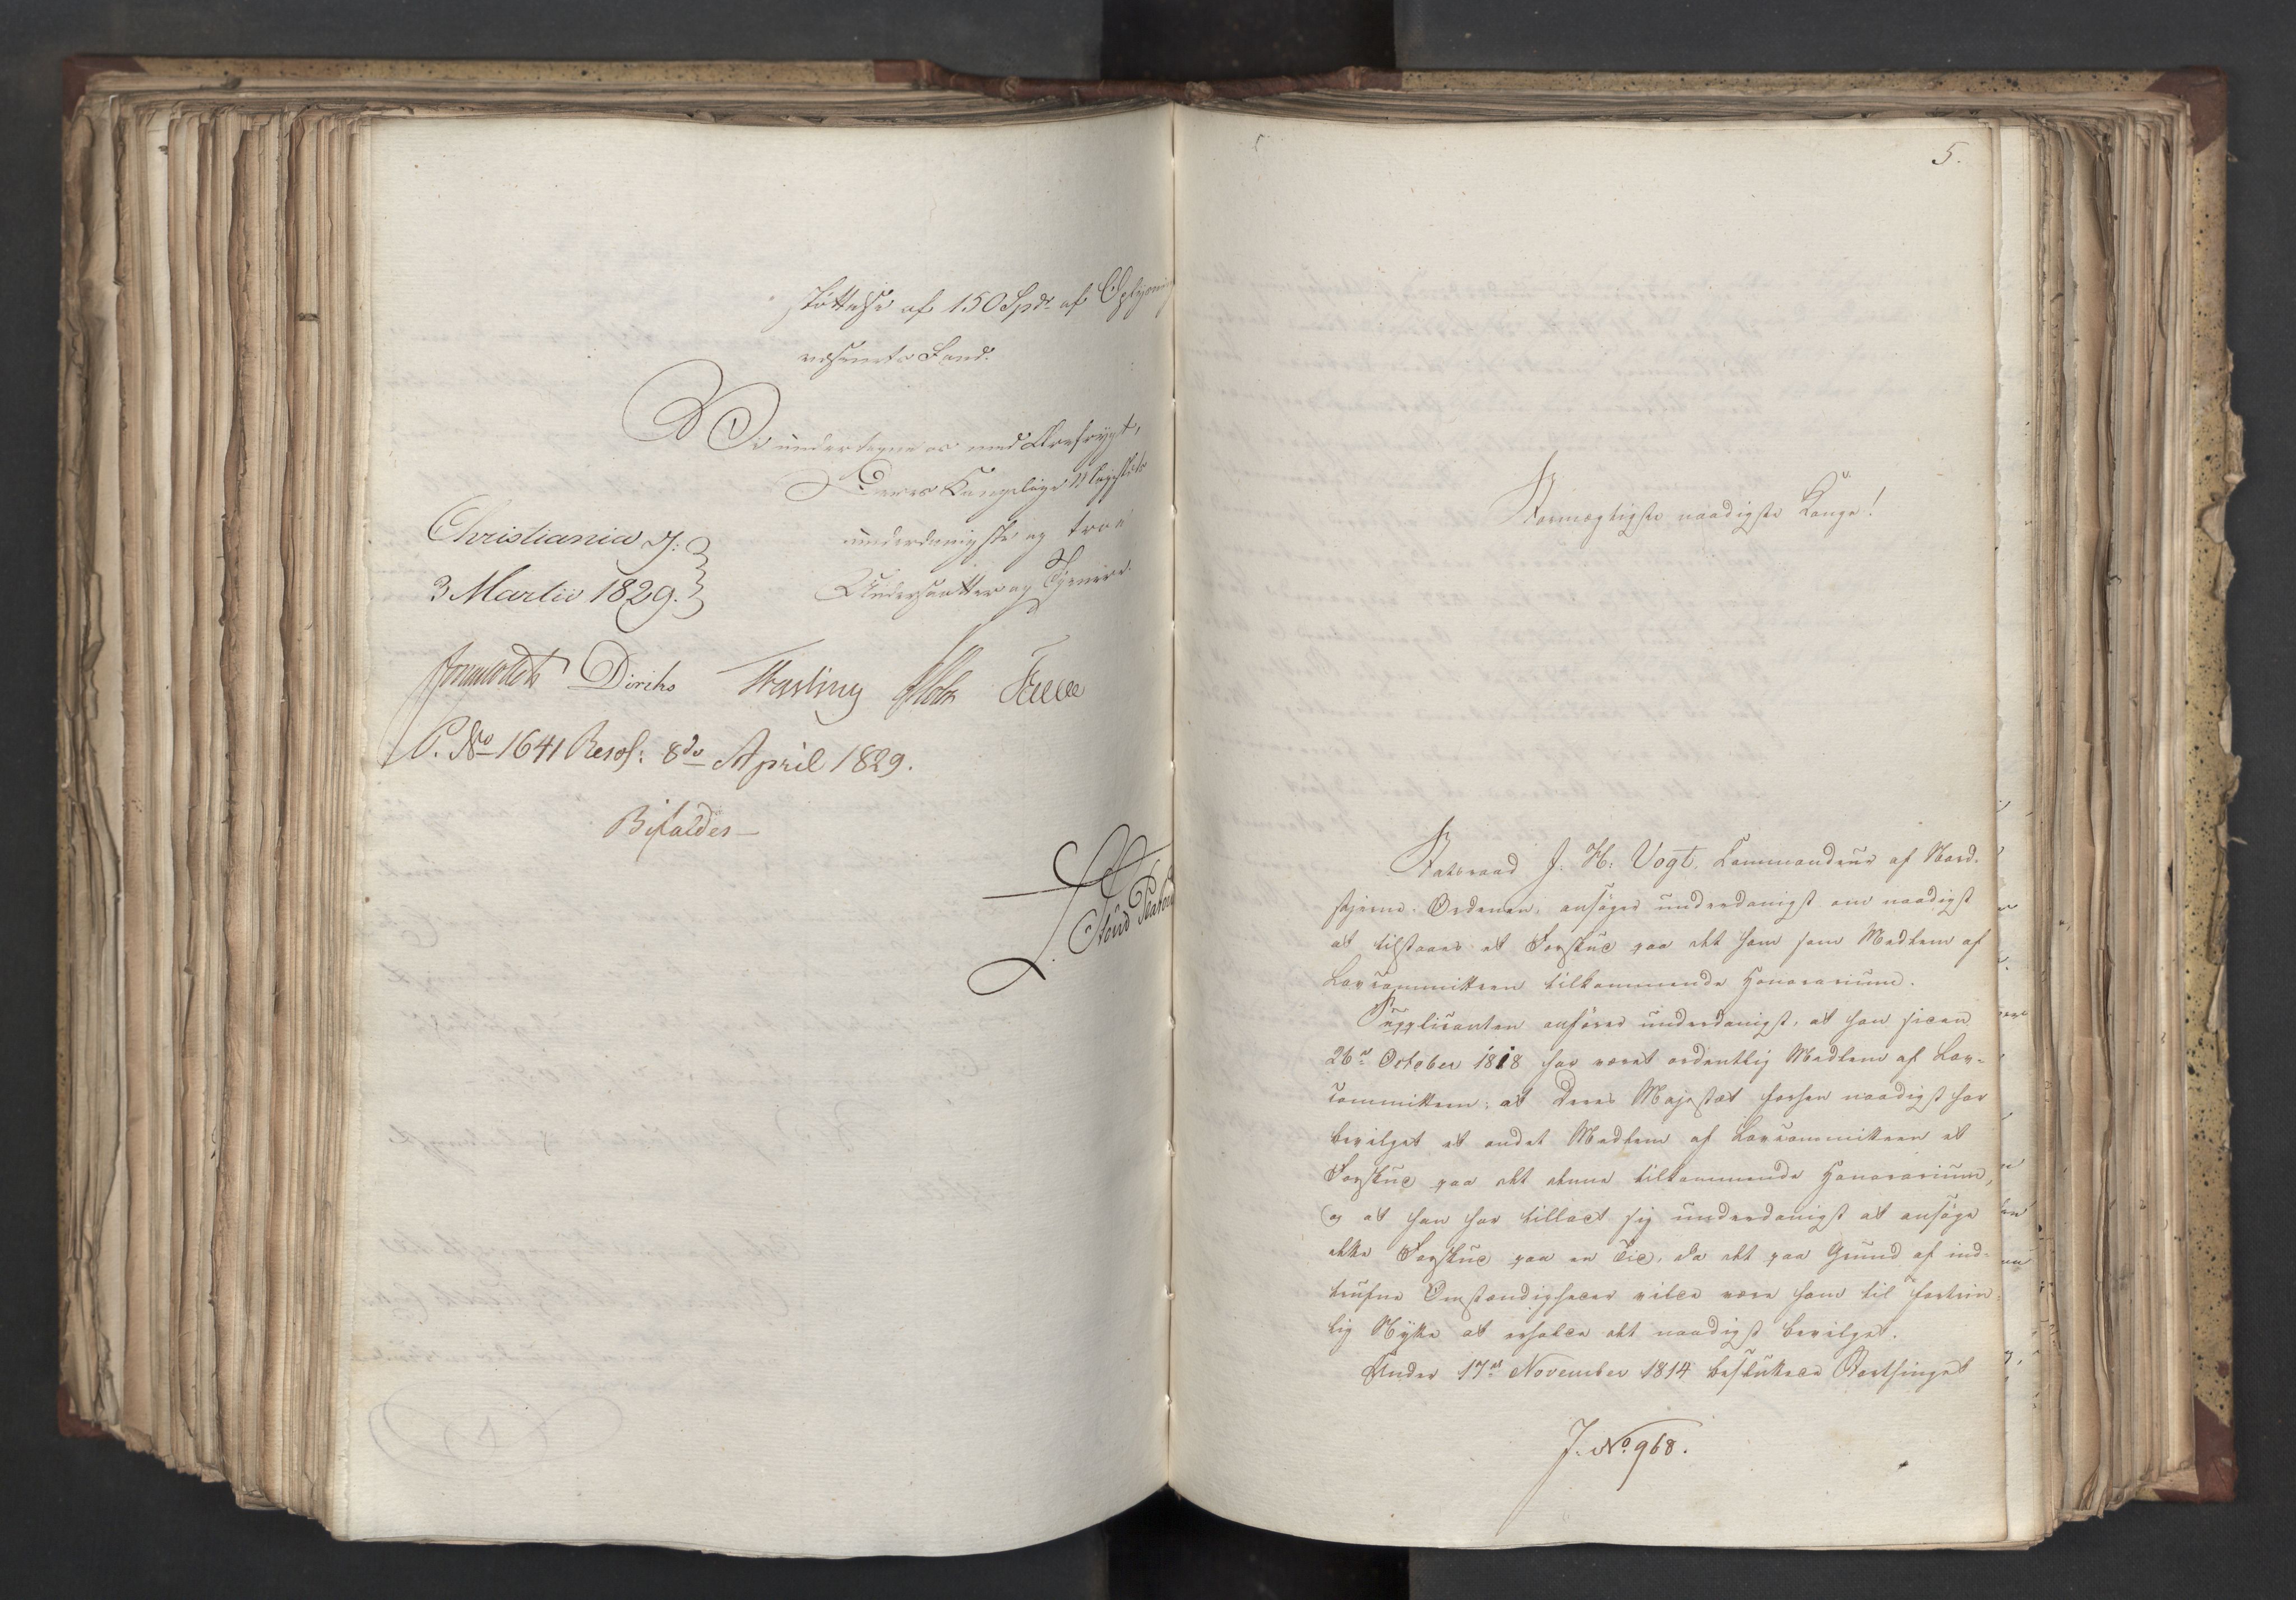 støttelse af 150 Spdr. af Oplysnings
væsenets Fond.
Vi undertegne os med Ærefrygt,
Deres Kongelige Majestæts
underdanigste og troe
Undersaatter og Tjenere.
Christiania d:
3 Martii 1829.
Diriks Fasting
P. No 1641 Resol: 8de April 1829.
Bifaldes
5.
Stormægtigste naadigste Konge!
Statsraad J. H. Vogt, Commandeur af Nord-
stjerne-Ordenen, ansøger underdanigst om naadigst
at tilstaaes et Forskud paa det ham som Medlem af
Lovcommitteen tilkommende Honorarium.
Supplicanten anfører underdanigst, at han siden
26de October 1818 har været ordentlig Medlem af Lov-
committeen; at Deres Majestæt forhen naadigst har
bevilget et andet Medlem af Lovcommitteen et
Forskud paa det denne tilkommende Honorarium,
og at han har tilladt sig underdanigst at ansøge
dette Forskud paa en Tid, da det paa Grund af ind-
trufne Omstændigheder vilde være ham til fortrin-
lig Nytte at erholde det naadigst bevilget.
Under 17de November 1814 besluttede Storthinget
J. No. 968.